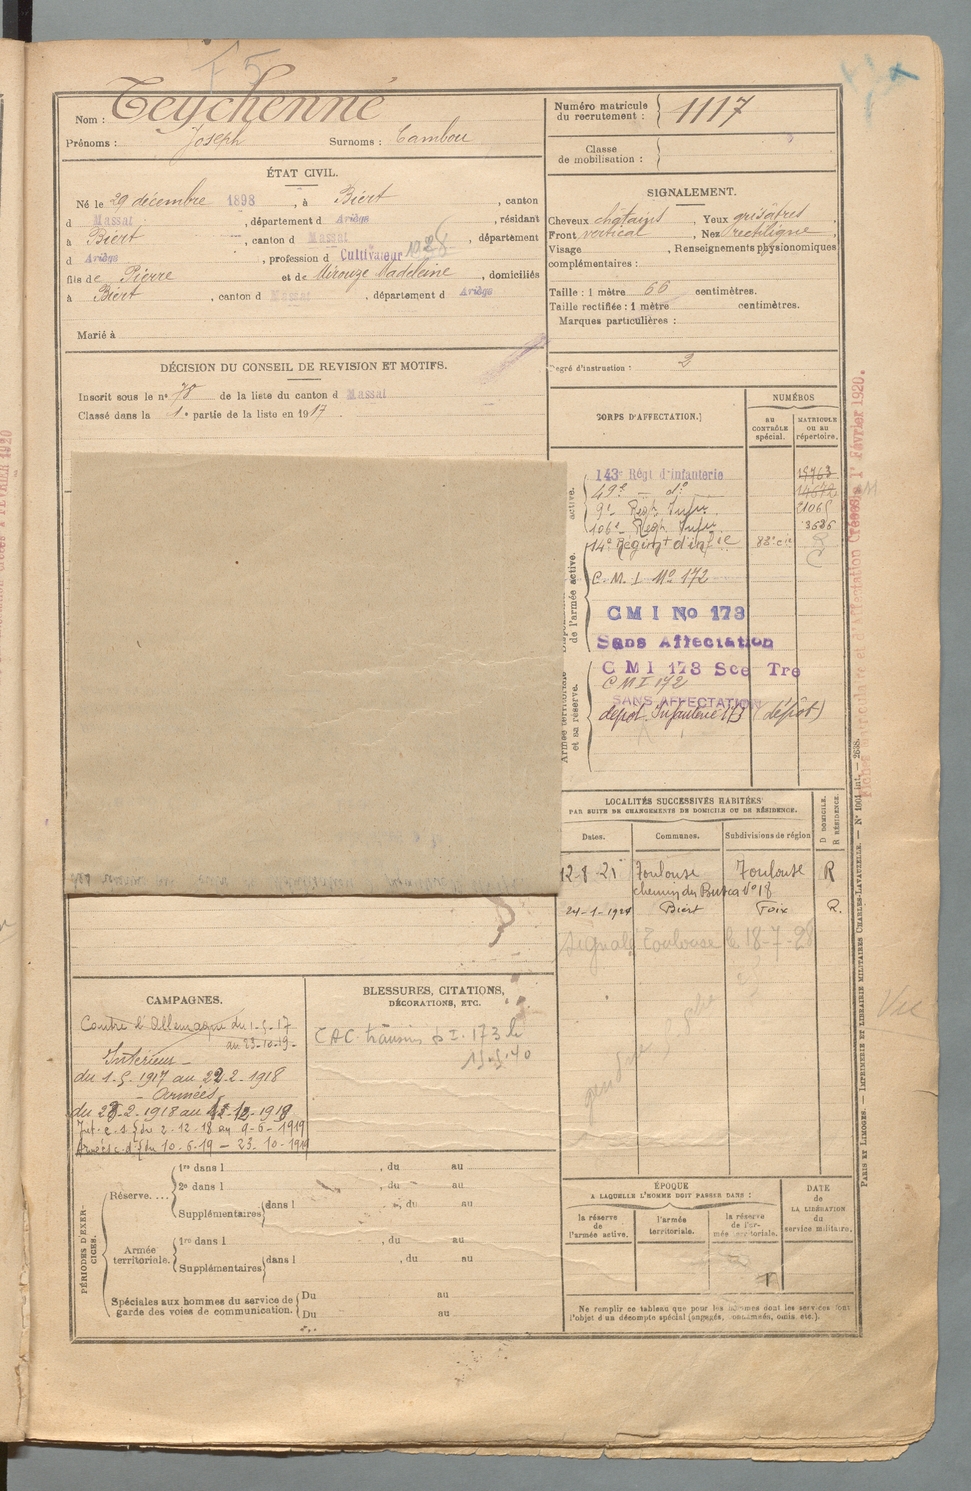 F 5
Nom : Teychenné
Prénoms : Joseph Surnoms : Tambou
ÉTAT CIVIL.
Né le 29 décembre 1898, à Biert, canton
d Massat, département d Ariège, résidant
à Biert, canton d Massat, département
d Ariège, profession d Cultivateur
fils de Pierre et de Mirouze Madeleine, domiciliés
à Biert, canton d Massat, département d Ariège
Marié à
DÉCISION DU CONSEIL DE REVISION ET MOTIFS.
Inscrit sous le nº 78 de la liste du canton d Massat
Classé dans la 1e partie de la liste en 1917
Numéro matricule du recrutement : 1117
Classe de mobilisation :
SIGNALEMENT.
Cheveux châtains, Yeux grisâtres,
Front vertical, Nez rectiligne,
Visage, Renseignements physionomiques
complémentaires :
Taille : 1 mètre 66 centimètres.
Taille rectifiée : 1 mètre centimètres.
Marques particulières :
Degré d'instruction : 3
CORPS D'AFFECTATION.
NUMÉROS
AU CONTRÔLE spécial.
MATRICULE OU AU répertoire.
active.
de l'armée active.
Armée territoriale et sa réserve.
143e Régt d'Infanterie 15763
49e - dº 14672
9e Régt Infie 21065
106e Régt Infie 3635
14e Régimt d'infie
C. M. I. Nº 172
C M I No 173
Sans Affectation
C M I 173 Sce Tre
C M I 172
SANS AFFECTATION
dépôt Infanterie 173 (dépôt)
LOCALITÉS SUCCESSIVES HABITÉES
PAR SUITE DE CHANGEMENTS DE DOMICILE OU DE RÉSIDENCE.
Dates. Communes. Subdivisions de région
D DOMICILE. R RÉSIDENCE.
12-8-25 Toulouse Toulouse R
chemin du Busca Nº 18
24-1-1927 Biert Foix R.
Signalé Toulouse le 18-7-28
CAMPAGNES.
Contre l'Allemagne du 1-5-17
au 23-10-19
Intérieur
du 1-5-1917 au 22-2-1918
Armées
du 23-2-1918 au 1-12-1918
Int. c. s. du 2-12-18 au 9-6-1919
Armées c. d. du 10-6-19 - 23-10-1919
BLESSURES, CITATIONS,
DÉCORATIONS, ETC.
CAC transmis D.I. 173 le
15-5-40
PÉRIODES D'EXERCICES.
Réserve....
1re dans l, du au
2e dans l, du au
Supplémentaires dans l, du au
Armée territoriale.
1re dans l, du au
Supplémentaires dans l, du au
Spéciales aux hommes du service de garde des voies de communication.
Du au
Du au
ÉPOQUE
A LAQUELLE L'HOMME DOIT PASSER DANS :
la réserve de l'armée active.
l'armée territoriale.
la réserve de l'armée territoriale.
DATE de LA LIBÉRATION du service militaire.
Ne remplir ce tableau que pour les hommes dont les services font
l'objet d'un décompte spécial (engagés, condamnés, omis, etc.).
PARIS ET LIMOGES. — IMPRIMERIE ET LIBRAIRIE MILITAIRES CHARLES-LAVAUZELLE. — Nº 1001 int. — 2638.
Vu